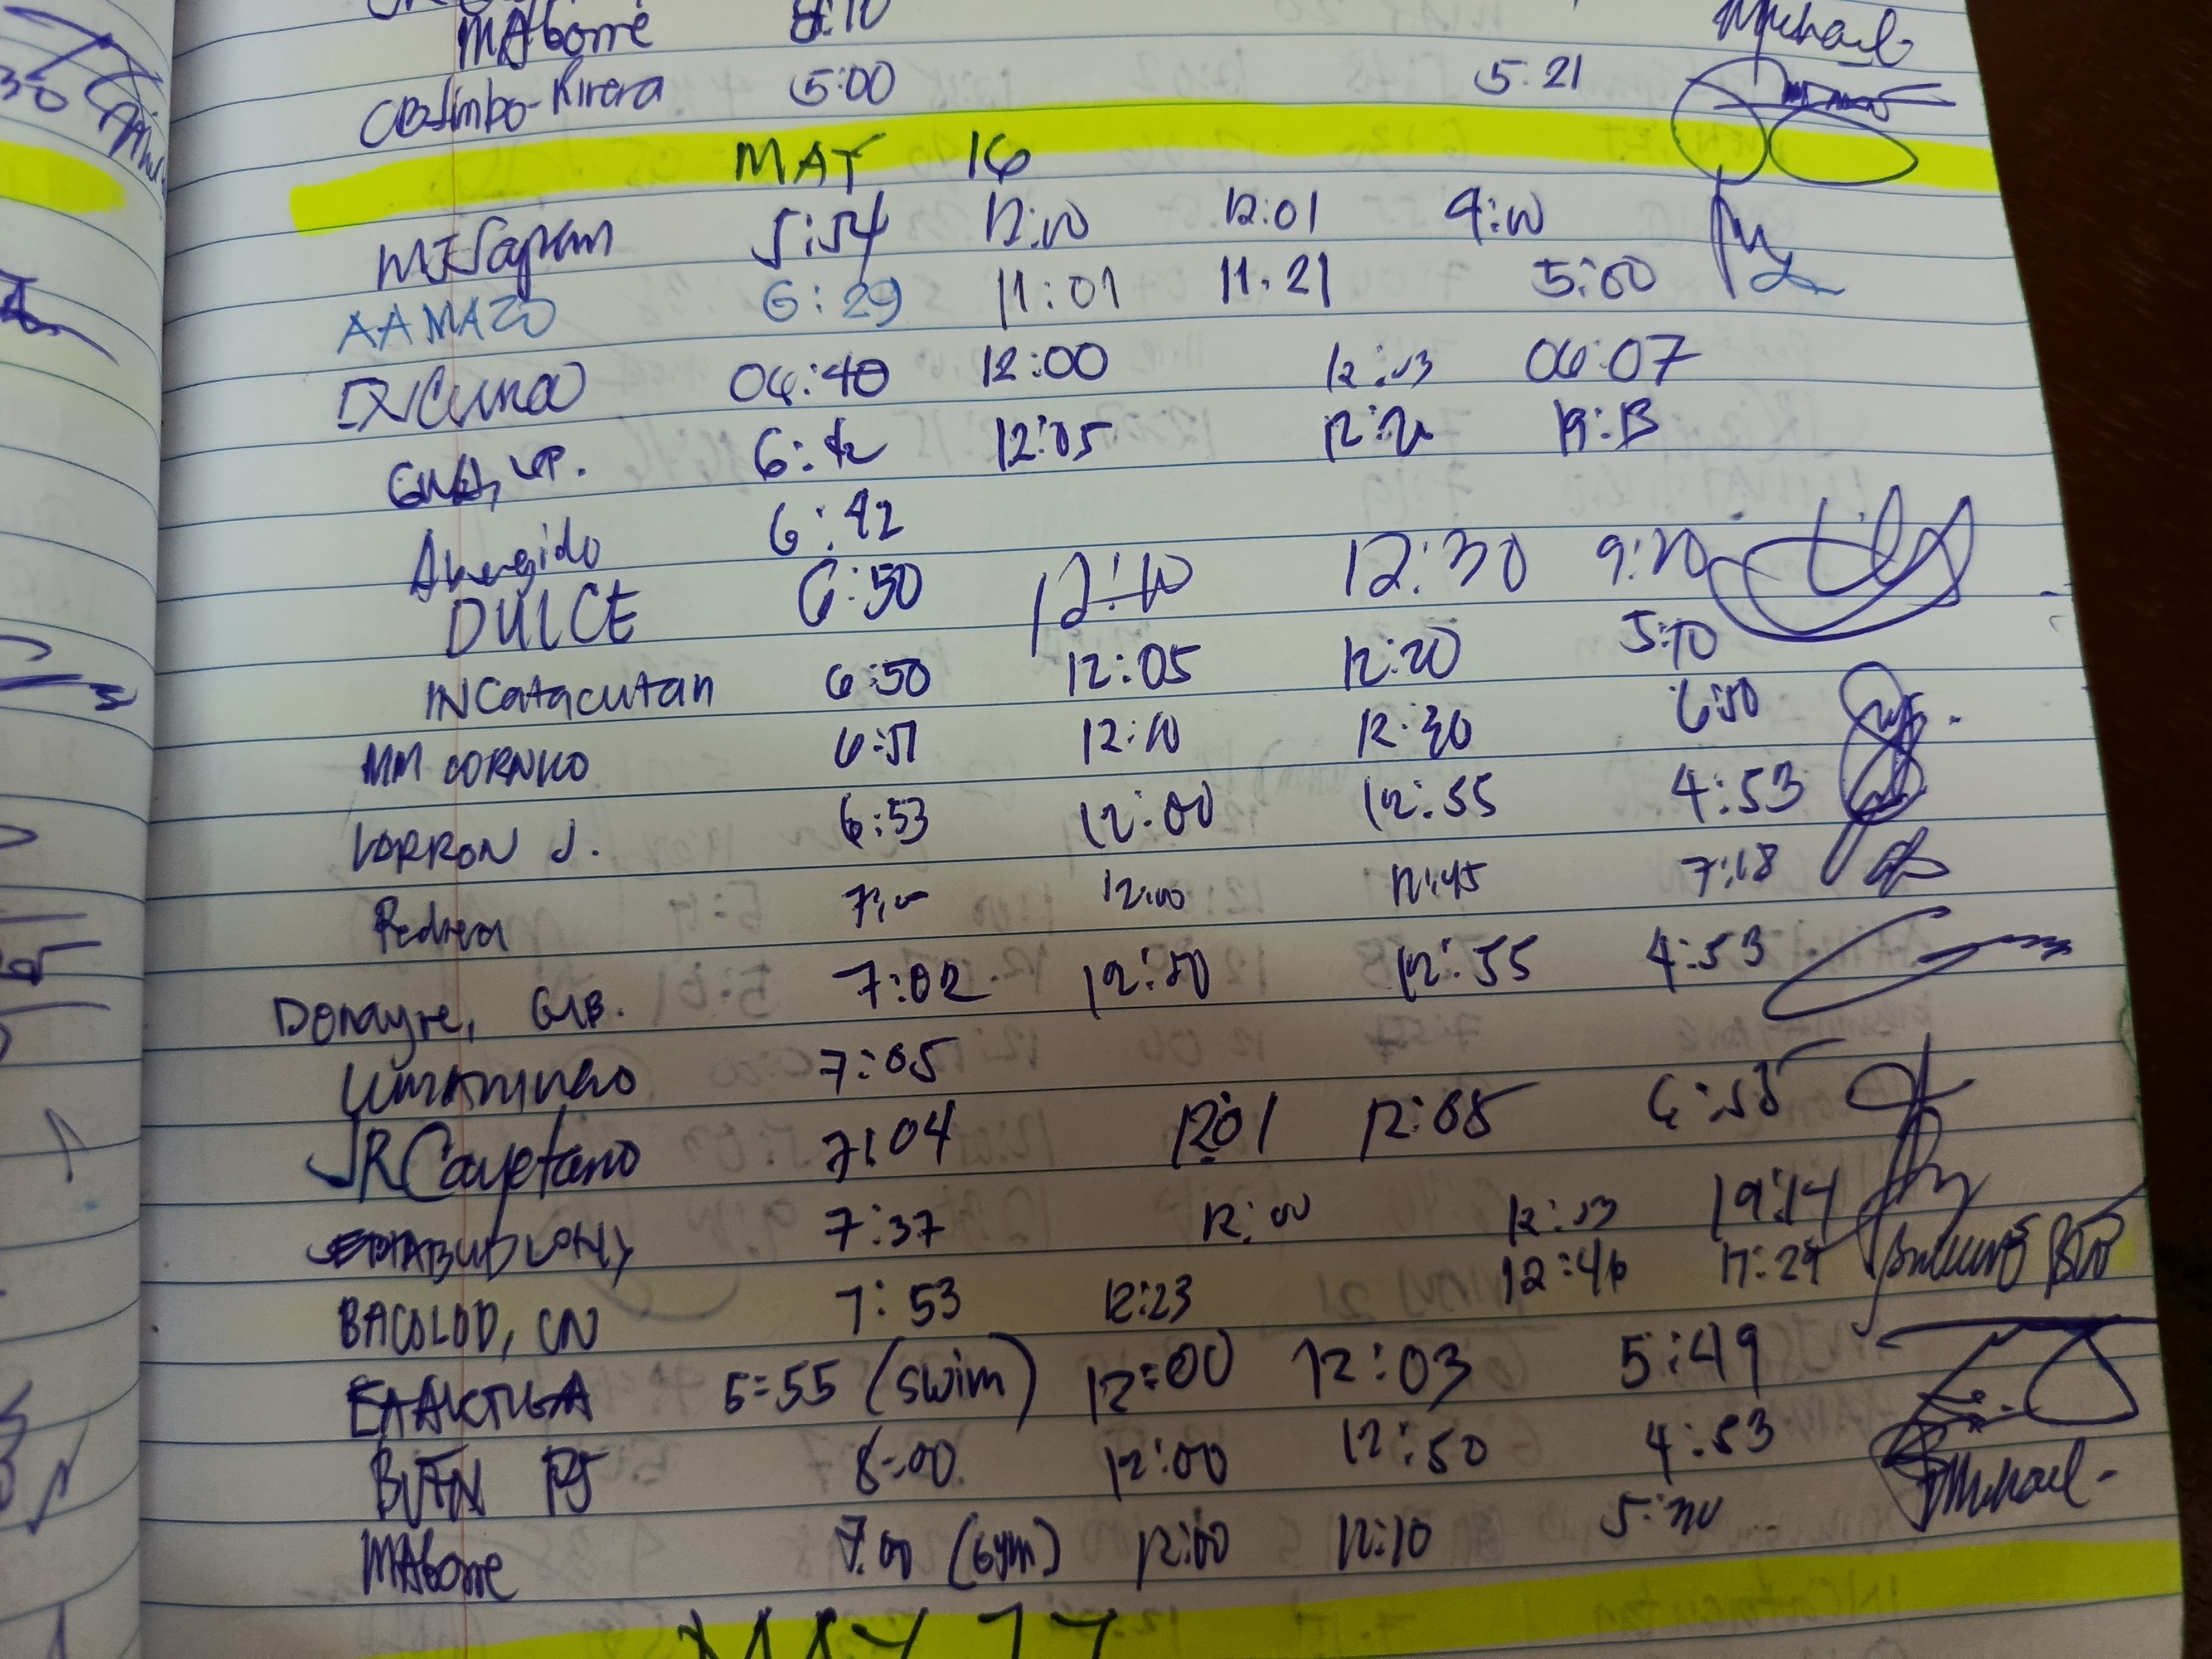 MAborre 8:10 Michael
CBJimbo-Rivera 5:00 5:21
MAY 16
5:54 12:10 12:01 4:10
AAMAZO 6:29 11:01 11.21 5:00
06:40 12:00 12:03 06:07
6:42 12:05 19:13
6:42
DULCE 6:50 12:10 12:30 9:20
INCatacutan 6:50 12:05 12:20 5:10
MM CORNICO 6:51 12:10 12:30 6:50
LORRON J. 6:53 12:00 12:55 4:53
7:00 12:00 12:45 7:18
Donayre, GIB. 7:02 12:50 12:55 4:53
7:05
JRCayetano 7:04 1201 12:05 6:55
7:37 12:00 12:03 19:14
BACOLOD, CN 7:53 12:23 12:46 17:29
5:55 (swim) 12:00 12:03 5:49
8:00 12:00 12:50 4:53
MAborre 7:00 (Gym) 12:00 12:10 5:20 Michael
MAY 17